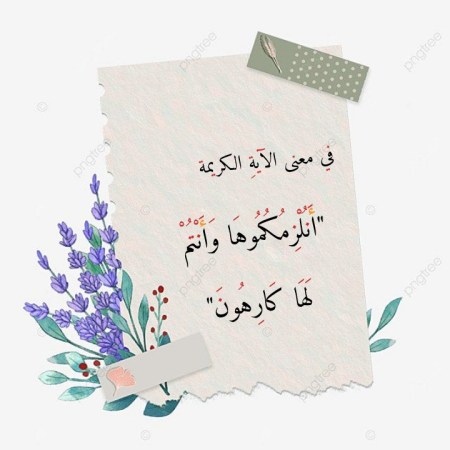 في معنى الآيةِ الكريمة
"أَنُلْزِمُكُمُوهَا وَأَنْتُمْ
لَهَا كَارِهُونَ"
pngtree